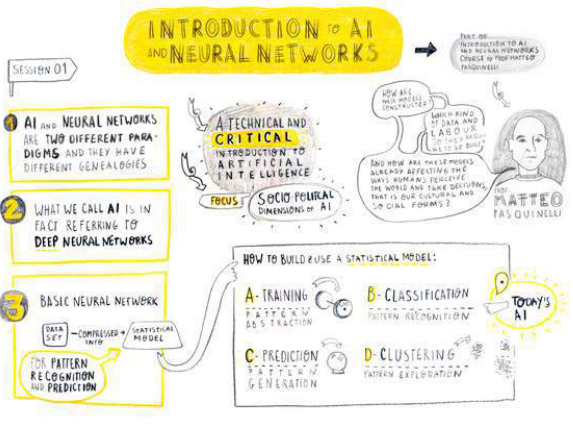 INTRODUCTION TO AI
AND NEURAL NETWORKS
PART OF
INTRODUCTION TO AI
AND NEURAL NETWORKS
COURSE BY PROF MATTEO
PASQUINELLI
SESSION 01
1 AI AND NEURAL NETWORKS
ARE TWO DIFFERENT PARA-
DIGMS AND THEY HAVE
DIFFERENT GENEALOGIES
2 WHAT WE CALL AI IS IN
FACT REFERRING TO
DEEP NEURAL NETWORKS
3 BASIC NEURAL NETWORK
DATA
SET
COMPRESSED
INFO
STATISTICAL
MODEL
FOR PATTERN
RECOGNITION
AND PREDICTION
A TECHNICAL AND
CRITICAL
INTRODUCTION TO
ARTIFICIAL
INTELLIGENCE
FOCUS
SOCIO POLITICAL
DIMENSIONS OF AI
HOW ARE
CONSTRUCTED?
WHICH KIND
OF DATA AND
LABOUR
AND HOW ARE THESE MODELS
ALREADY AFFECTING THE
WAYS HUMANS PERCEIVE
THE WORLD AND TAKE DECISIONS,
THAT IS OUR CULTURAL AND
SOCIAL FORMS?
PROF
MATTEO
PASQUINELLI
HOW TO BUILD & USE A STATISTICAL MODEL:
A- TRAINING
PATTERN
ABSTRACTION
B- CLASSIFICATION
PATTERN RECOGNITION
C- PREDICTION
PATTERN
GENERATION
D- CLUSTERING
PATTERN EXPLORATION
TODAY'S
AI